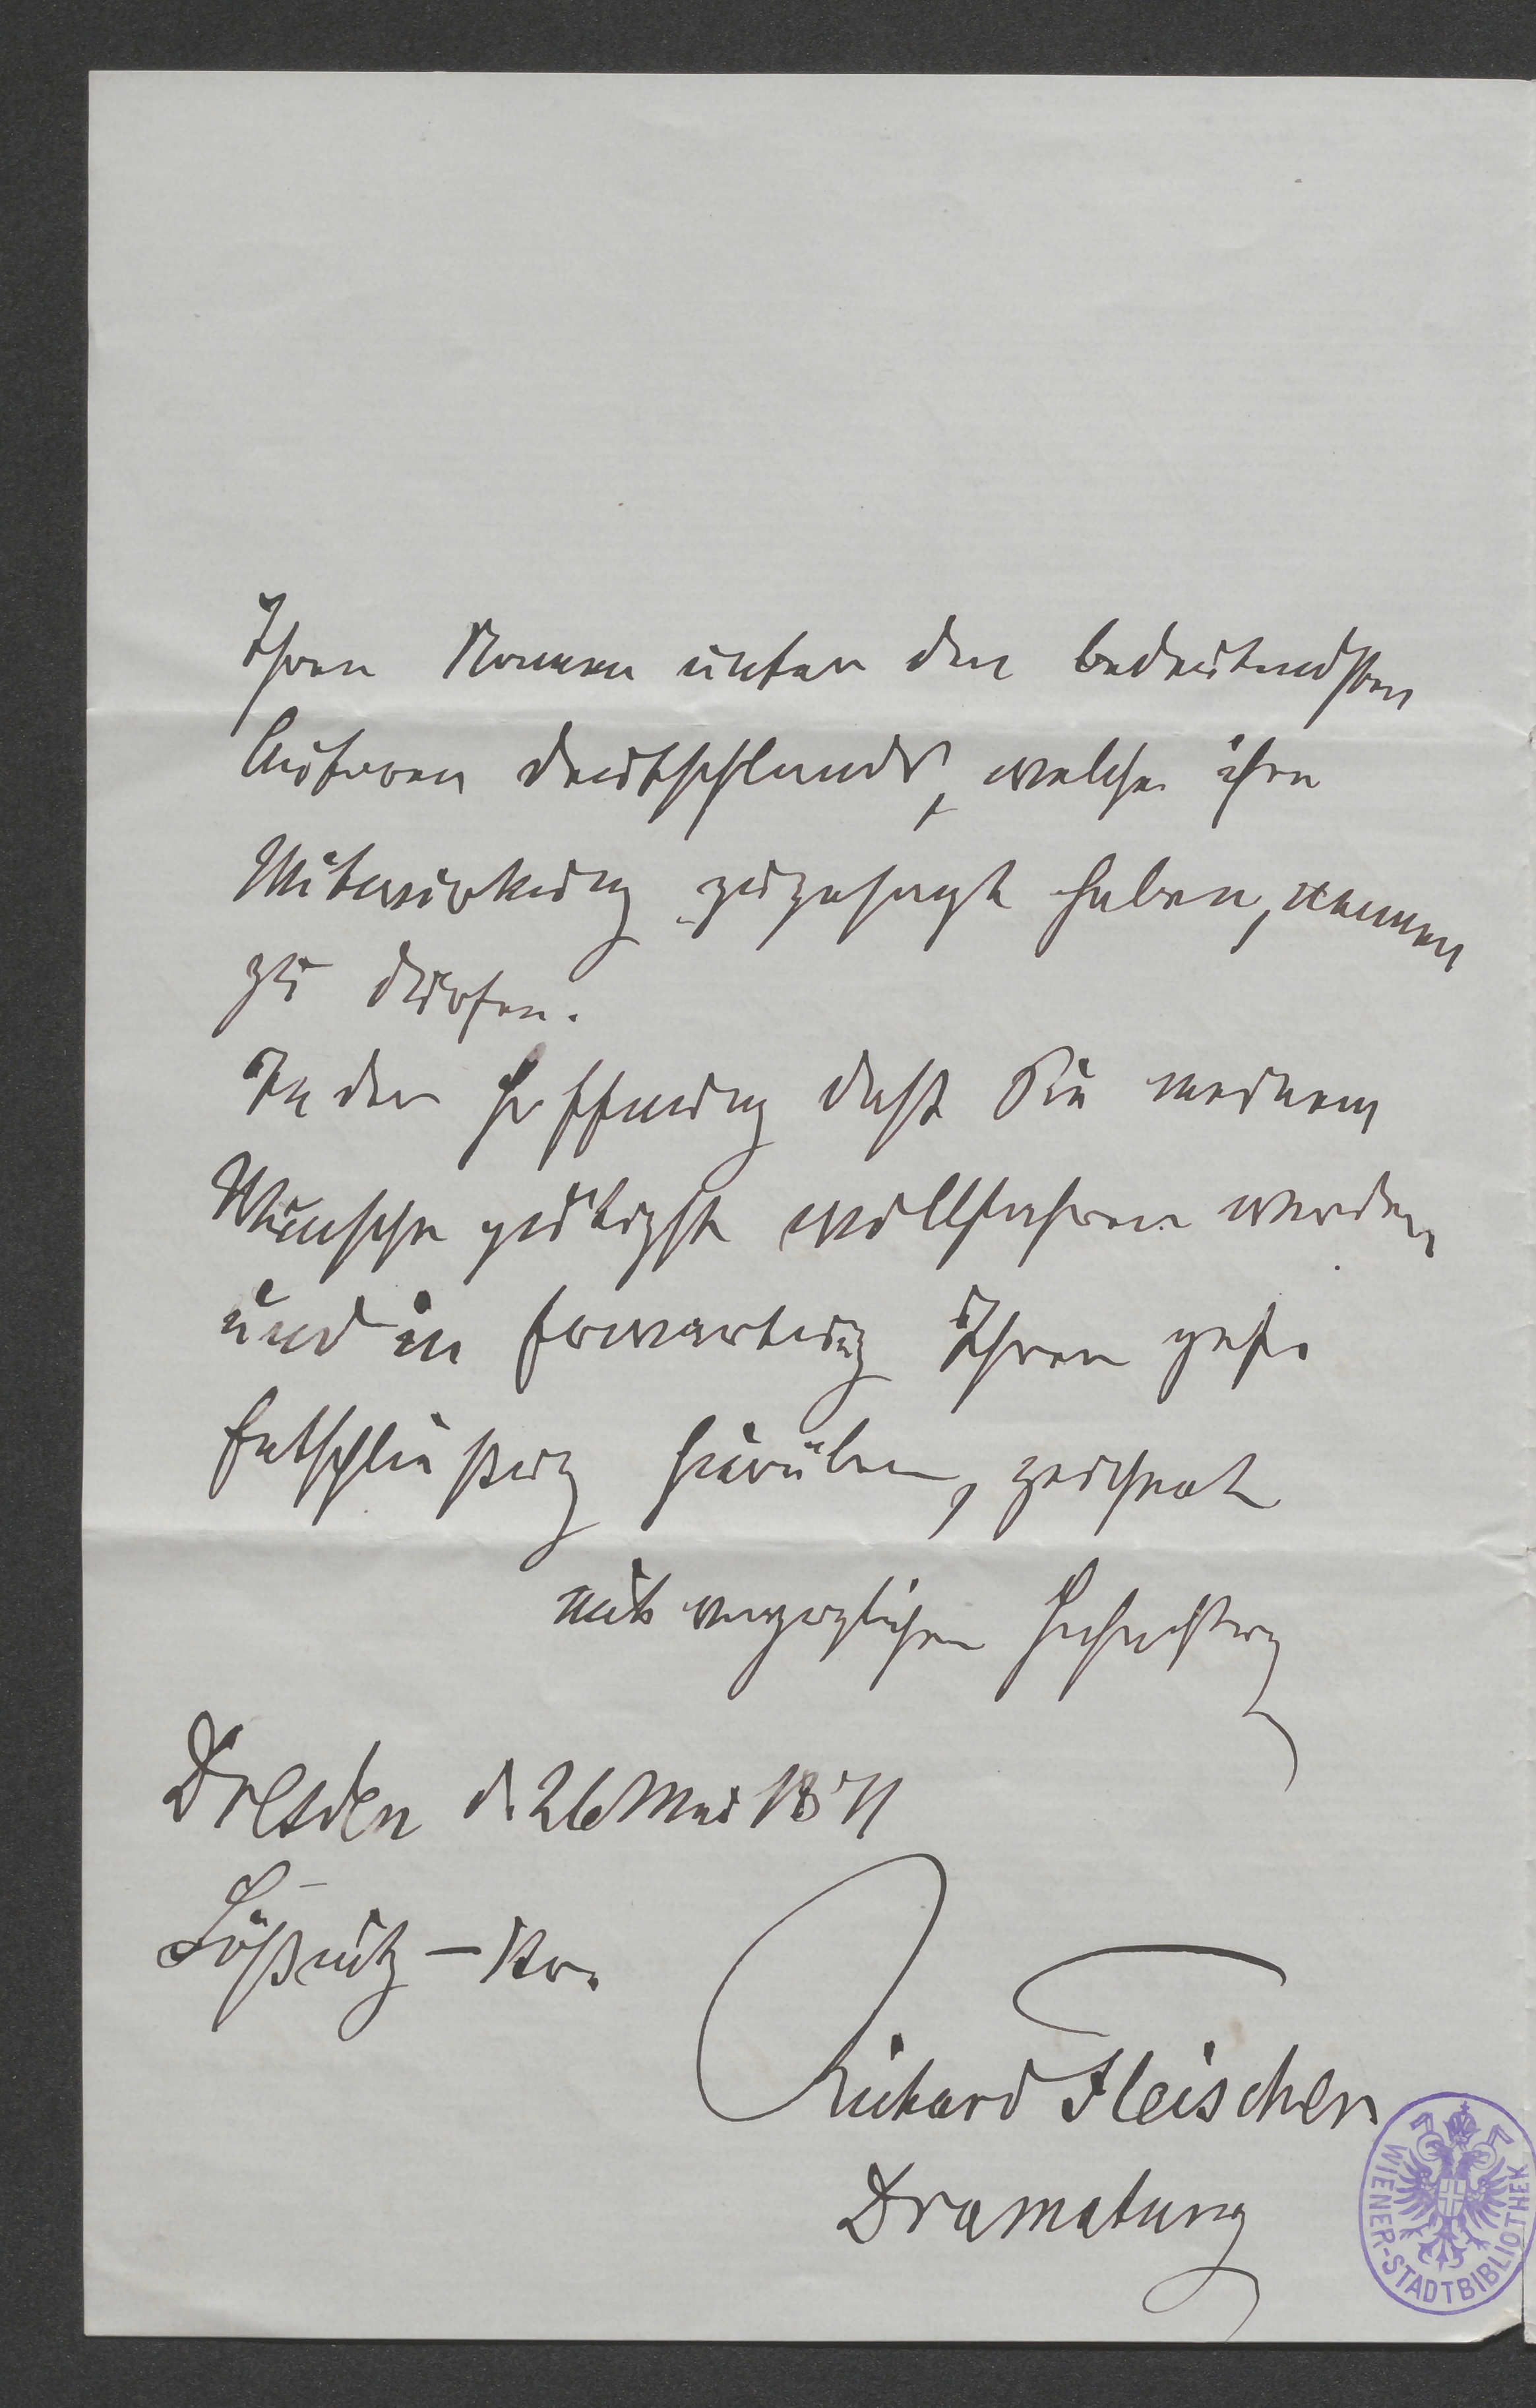 Ihren Namen unter den bedeutendsten
Autoren Deutschlands, welche ihre
Mitwirkung zugesagt haben, nennen
zu dürfen.
In der Hoffnung daß Sie meinem
Wunsche gütigst willfahren werden
und in Erwartung Ihrer gefl.
Entschließung hierüber, zeichnet
mit vorzüglicher Hochachtung
Dresden d. 26 Mai 1871
Lößnitz-Str.
Richard Fleischer
Dramaturg
WIENER-STADTBIBLIOTHEK